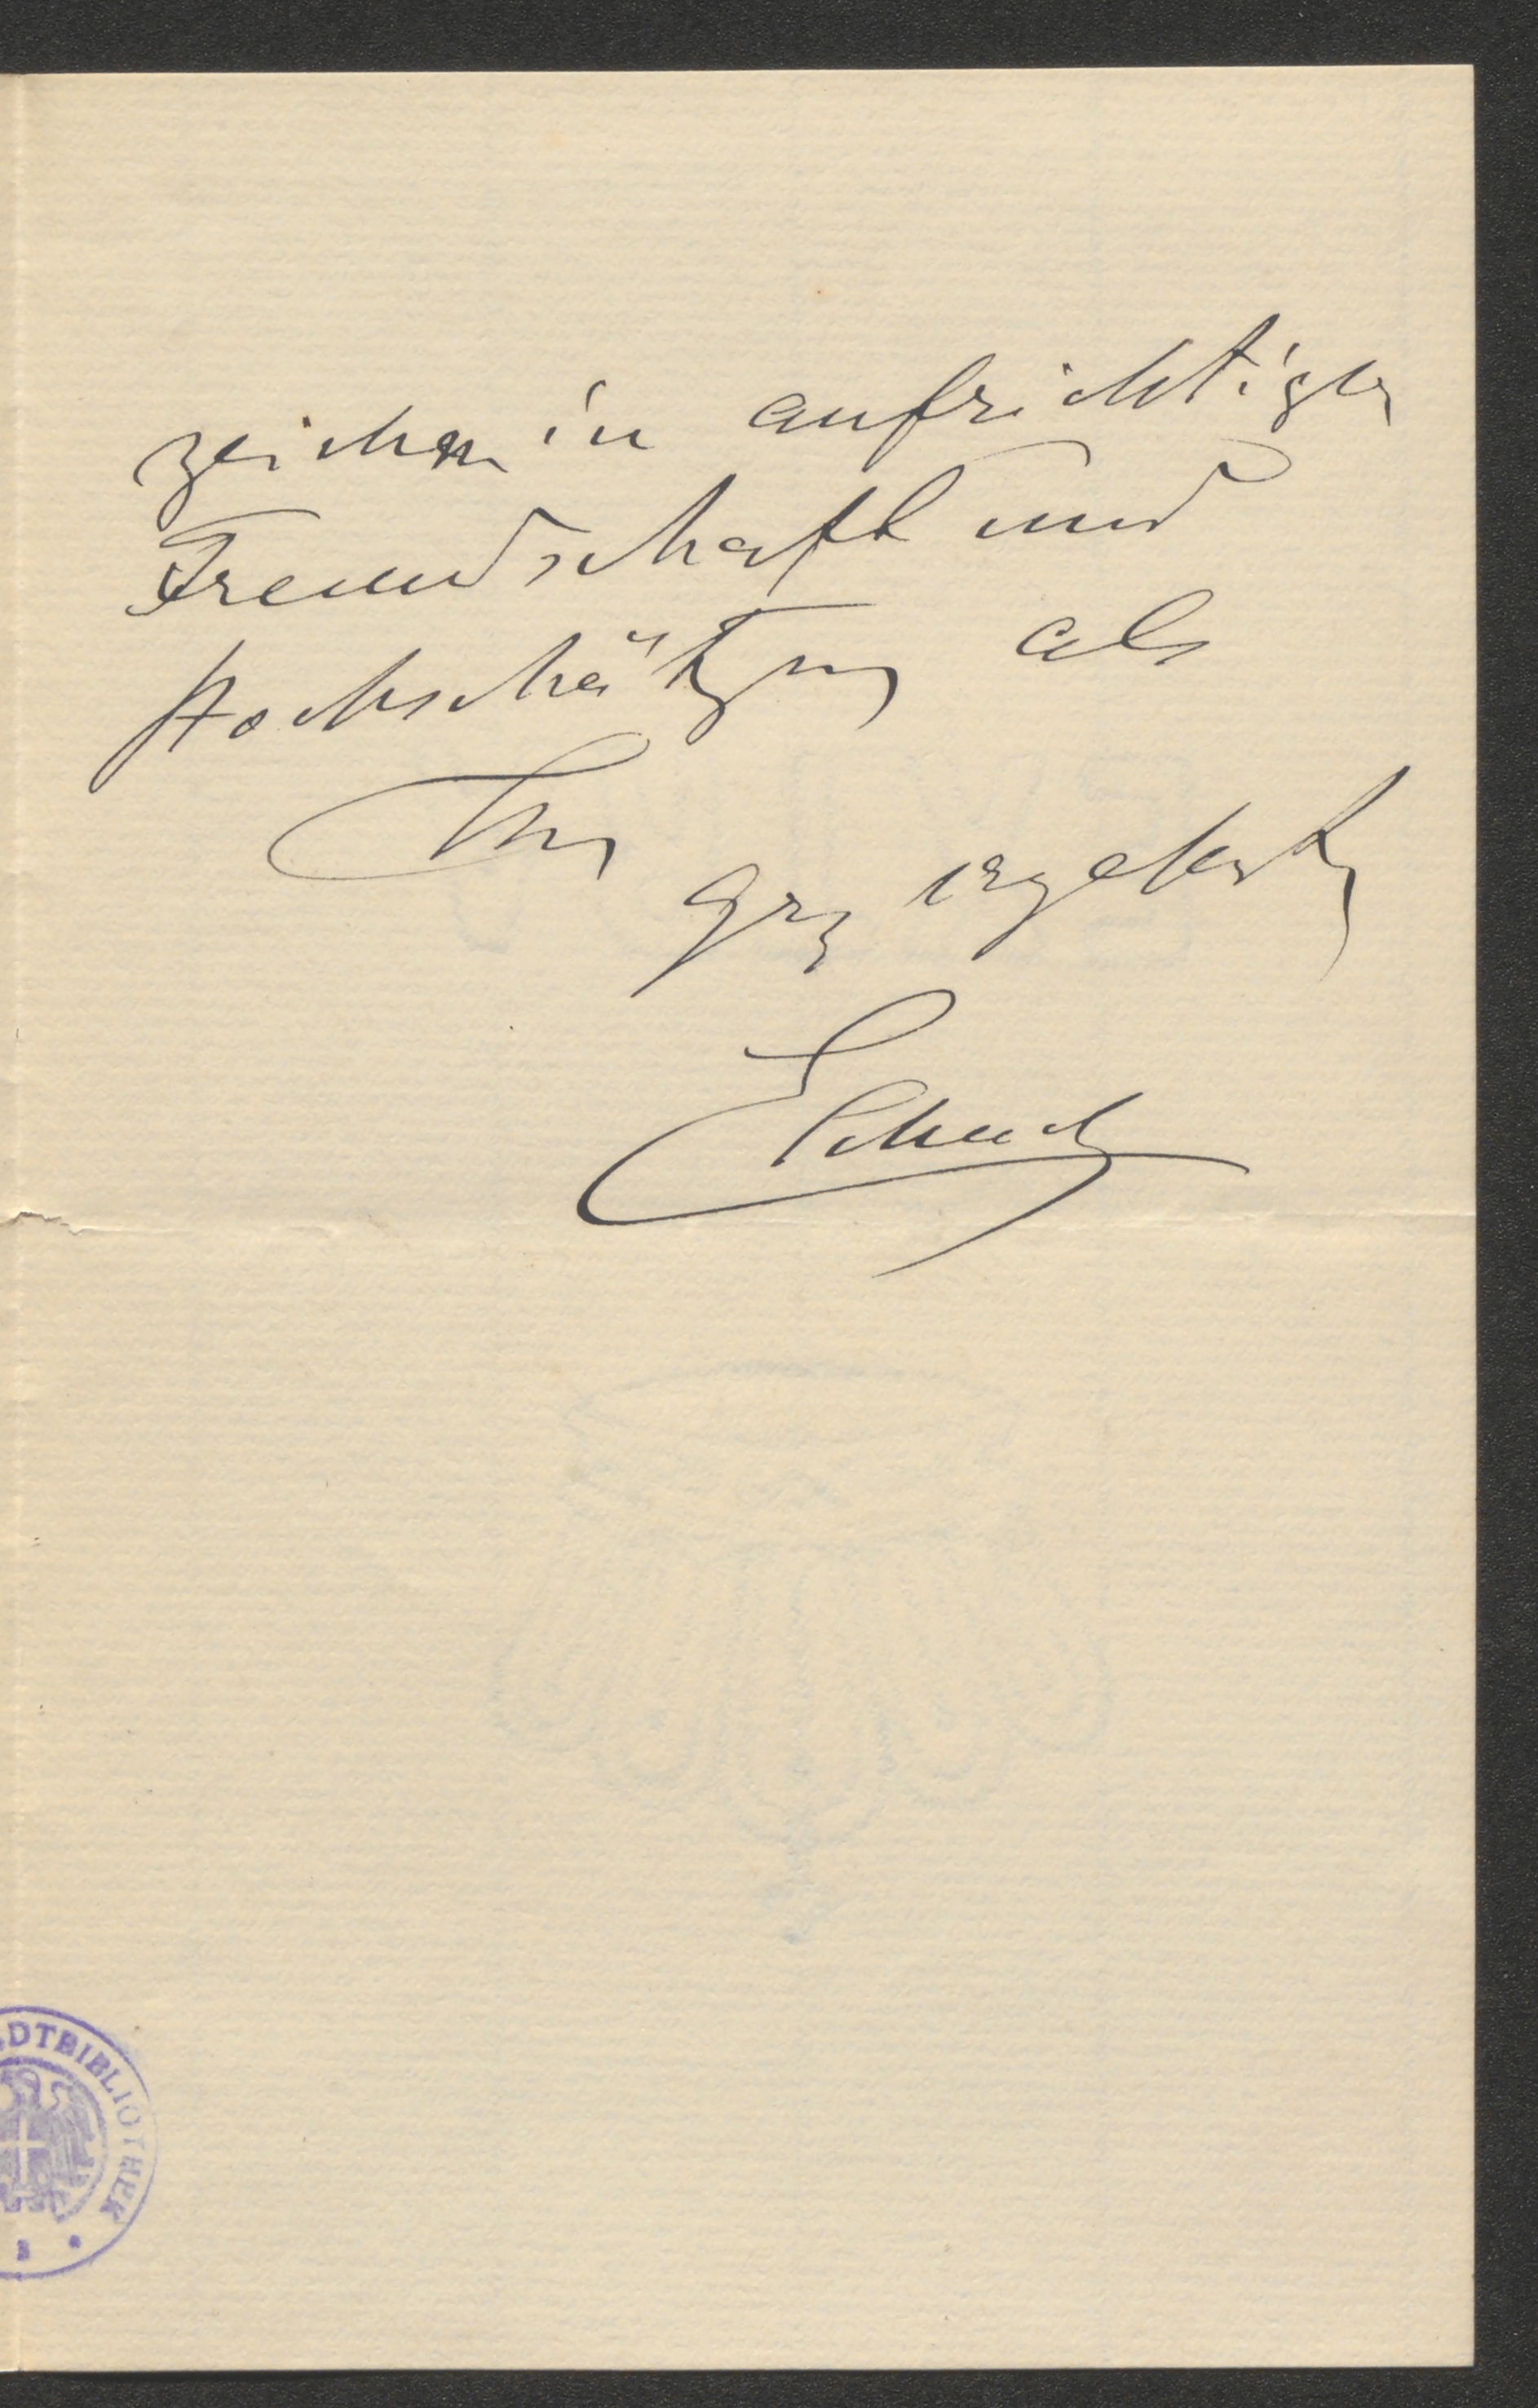 zeichnen in aufrichtiger
Freundschaft und
Hochschätzung als
Ihr
ganz ergebenster
ESchuch
DTBIBLIOTHEK